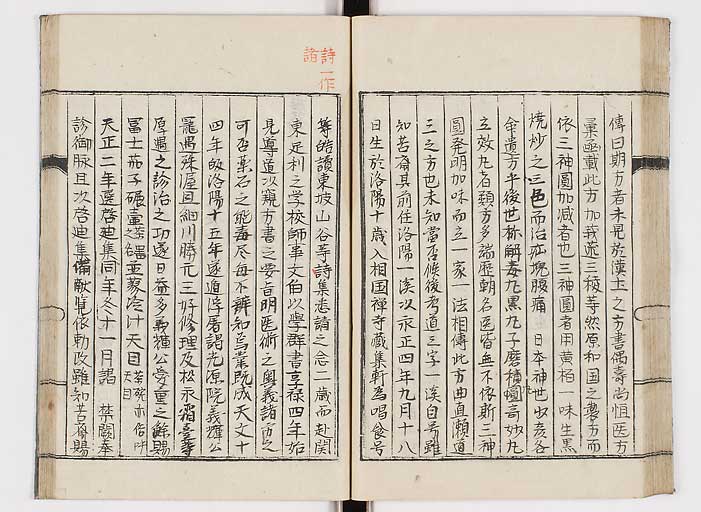 傳曰期方者未見於漢土之方書偶壽尚恒医方
彙函載此方加莪蒁三稜等然原和国之製方而
依三神圓加減者也三神圓者用黄栢一味生黒
焼炒之三色而治疝塊腹痛 日本神世少彦名
命遺方半後世称解毒丸黒丸子磨積圓竒妙丸
立效丸者類方多端歴朝名医皆無不依斯三神
圓発明加味而立一家一法相傳此方曲直瀬道
三之方也未知當否候後考道三字一溪自号雖
知苦斎其前住洛陽一溪以永正四年九月十八
日生於洛陽十歳入相国禅寺蔵集軒為唱食号
等皓讀東坡山谷等詩集悉誦之念二歳而赴関
東足利之学校師事文伯以學群書享禄四年始
見導道以窺方書之要旨明医術之奥義諸方之
可否薬石之能毒尽毎不辨知焉業既成天文十
四年皈洛陽十五年遂遁浮屠謁光源院義輝公
罷遇殊渥且細川勝元三好修理及松永霜臺等
厚遇之診治之功逐日益多義猶公愛重之餘賜
冨士茄子碾壷茶器之名並蒙冷汁天目茶碗亦俗所天目
天正二年選啓迪集同年冬十一月謁 禁闕奉
診御脉且以啓迪集備献覧依勅改雖知苦斎賜
詩一作
諸